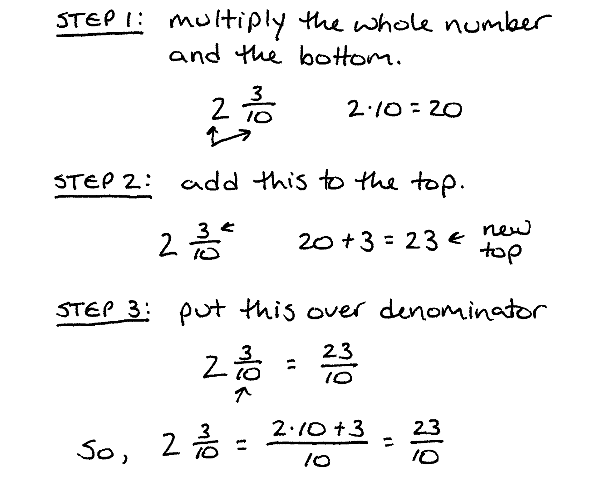 STEP 1: multiply the whole number
and the bottom.
2 3/10 2·10 = 20
STEP 2: add this to the top.
2 3/10 ← 20 + 3 = 23 ← new top
STEP 3: put this over denominator
2 3/10 = 23/10
↑
So, 2 3/10 = 2·10 + 3/10 = 23/10